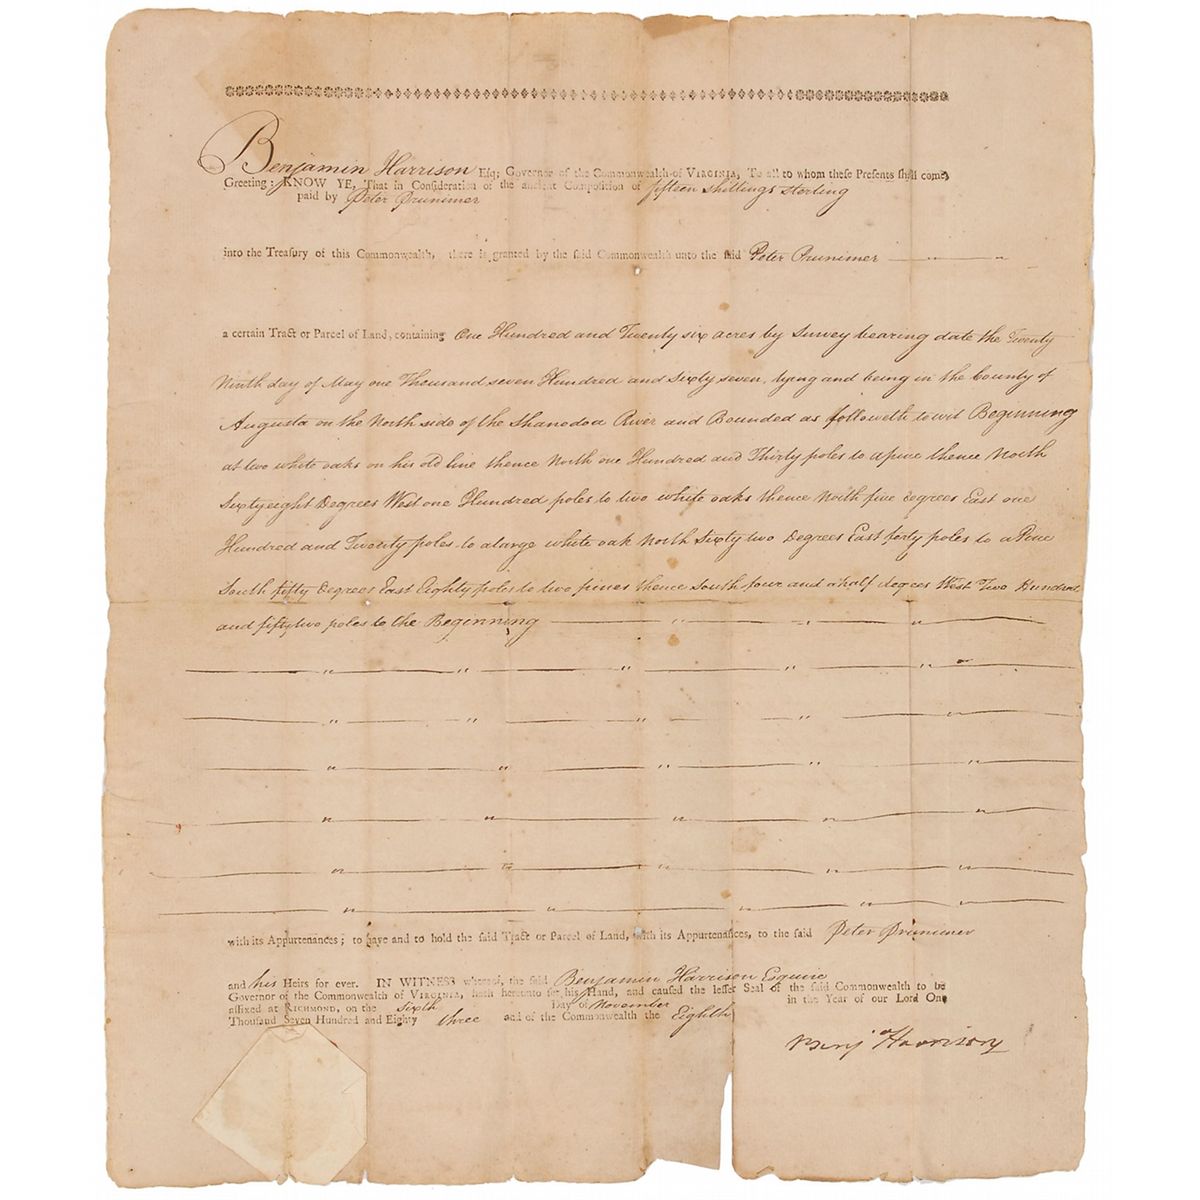 Benjamin Harrison Esq; Governor of the Commonwealth of VIRGINIA, To all to whom these Presents shall come,
Greeting: KNOW YE, That in Consideration of the ancient Composition of fifteen shillings sterling
paid by Peter Prunimer
into the Treasury of this Commonwealth, there is granted by the said Commonwealth unto the said Peter Prunimer
a certain Tract or Parcel of Land, containing One Hundred and Twenty six acres by Survey bearing date the Twenty
Ninth day of May one Thousand seven Hundred and Sixty seven, lying and being in the County of
Augusta on the North side of the Shanodoa River and Bounded as followeth to wit Beginning
at two white oaks on his old line thence North one Hundred and Thirty poles to a pine thence North
Sixty eight Degrees West one Hundred poles to two white oaks thence North five degrees East one
Hundred and Twenty poles to a large white oak North Sixty two Degrees East forty poles to a Pine
South fifty Degrees East Eighty poles to two pines thence South four and a half degees West Two Hundred
and fifty two poles to the Beginning
with its Appurtenances; to have and to hold the said Tract or Parcel of Land, with its Appurtenances, to the said Peter Prunimer
and his Heirs for ever. IN WITNESS whereof, the said Benjamin Harrison Esquire
Governor of the Commonwealth of VIRGINIA, hath hereunto set his Hand, and caused the lesser Seal of the said Commonwealth to be
affixed at RICHMOND, on the Sixth Day of November in the Year of our Lord One
Thousand Seven Hundred and Eighty three and of the Commonwealth the Eighth
Benj Harrison